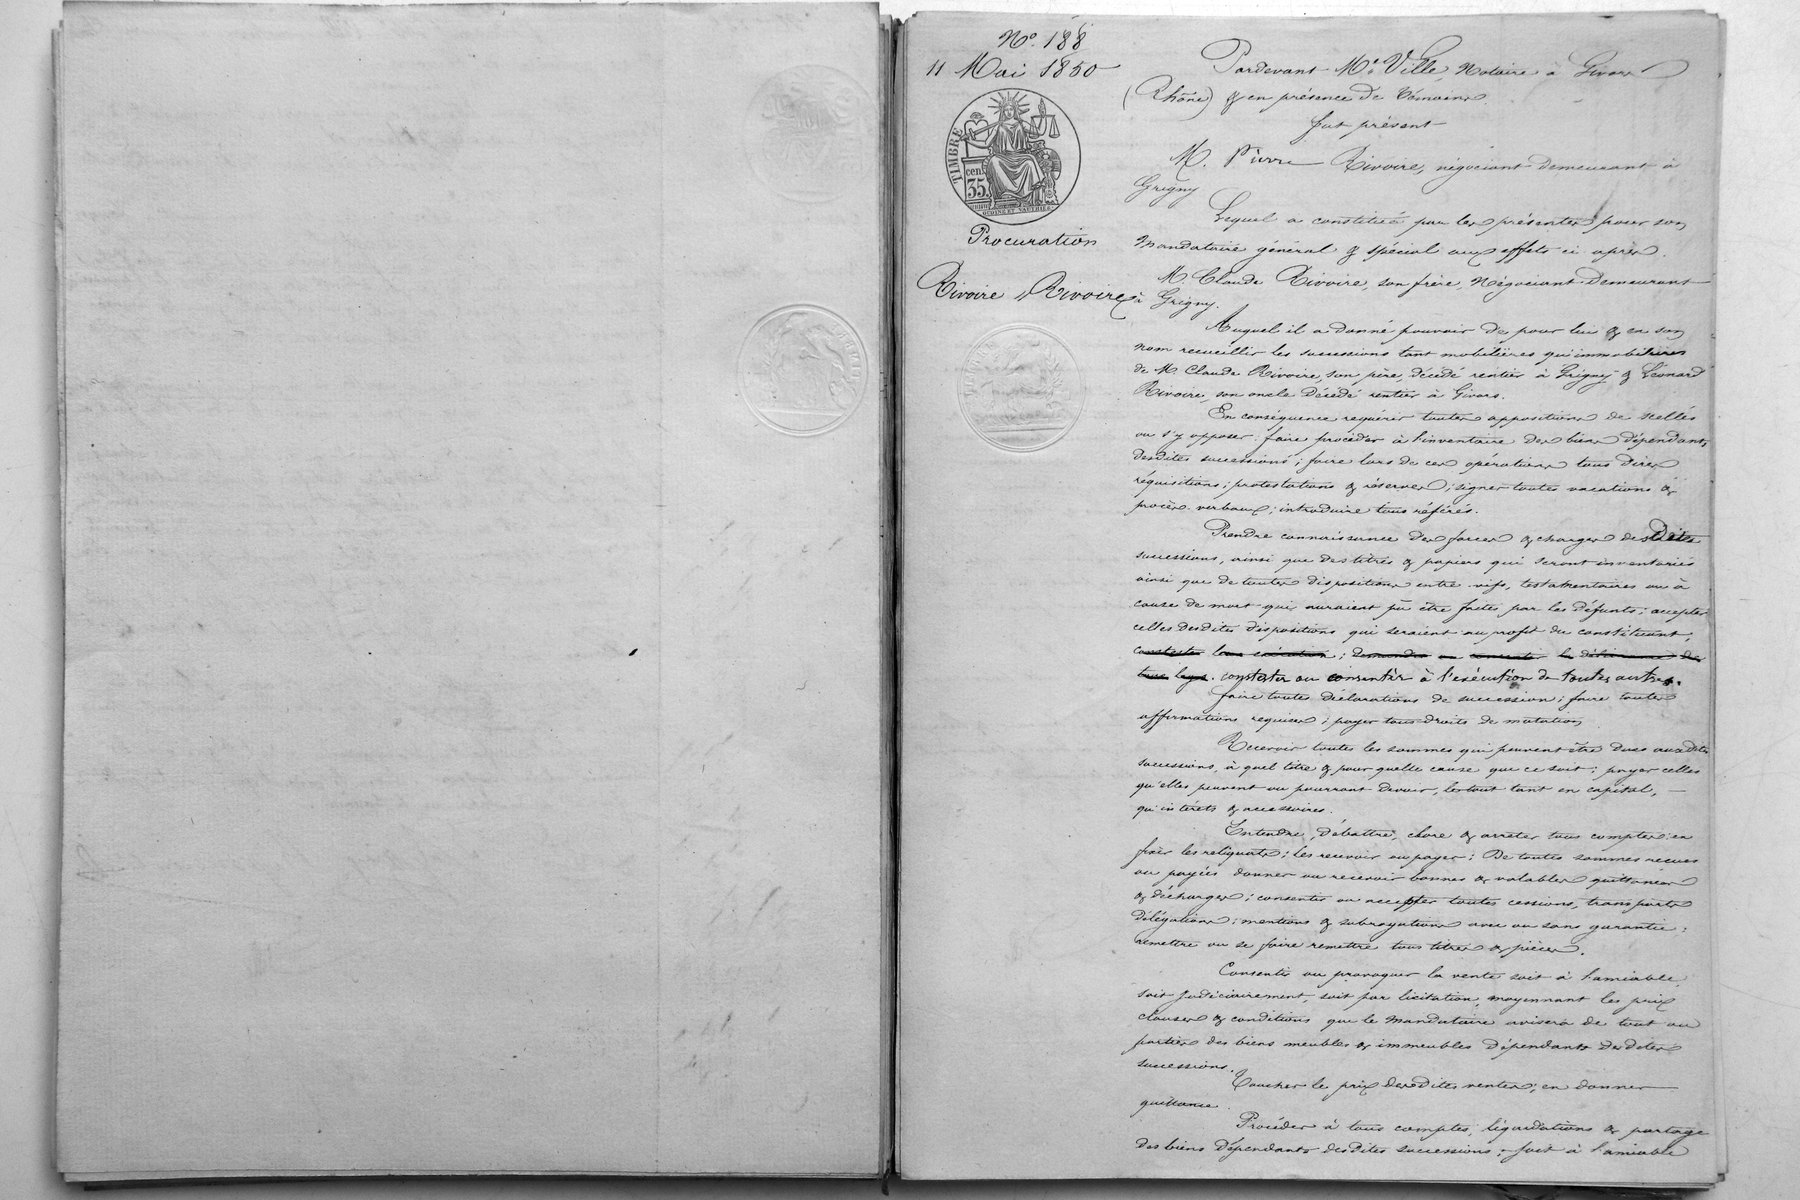 N.º 188
11 Mai 1850
TIMBRE
cen.
35
OUDINÉ ET GAUTHIER.
Procuration
Rivoire à Rivoire
Pardevant M.e Ville, Notaire à Givors
(Rhône) & en présence de témoins.
fut présent
M. Pierre Rivoire, négociant demeurant à
Grigny
Lequel a constitué par les présentes pour son
Mandataire général & spécial aux effets ci après.
M. Claude Rivoire, son frère, Négociant Demeurant
à Grigny.
Auquel il a donné pouvoir de pour lui & en son
nom recueillir les successions tant mobilières qu'immobilières
de M. Claude Rivoire, son père, décédé rentier à Grigny & Léonard
Rivoire, son oncle Décédé rentier à Givors.
En conséquence requérir toutes appositions de scellés
ou s'y opposer. faire procéder à l'inventaire des biens dépendants
desdites successions; faire lors de ces opérations tous dires
réquisitions; protestations & réserves; signer toutes vacations &
procès verbaux; introduire tous référés.
Prendre connaissance des forces & charges desdites
successions, ainsi que des titres & papiers qui seront inventoriés
ainsi que de toutes dispositions entre vifs, testamentaires ou à
cause de mort qui auraient pû être faites par les défunts; accepter
celles desdites dispositions qui seraient au profit du constituant,
contester leur exécution; demander ou consentir la délivrance de
tous legs. contester ou consentir à l'exécution de toutes autres.
faire toutes déclarations de succession; faire toutes
affirmations requises; payer tous droits de mutation
Recevoir toutes les sommes qui peuvent être dues auxdites
successions, à quel titre & pour quelle cause que ce soit; payer celles
qu'elles peuvent ou pourront devoir, le tout tant en capital,
qu'intérêts & accessoires.
Entendre, débattre, clore & arrêter tous comptes; en
fixer les reliquats; les recevoir ou payer; De toutes sommes reçues
ou payées donner ou recevoir bonnes & valables quittances
& décharges; consentir ou accepter toutes cessions, transports
délégations; mentions & subrogations avec ou sans garantie;
remettre ou se faire remettre tous titres & pièces.
Consentir ou provoquer la vente soit à l'amiable,
soit judiciairement, soit par licitation, moyennant les prix
clauses & conditions que le mandataire avisera de tout ou
parties des biens meubles & immeubles dépendants desdites
successions.
Toucher le prix desdites ventes; en donner
quittance.
Procéder à tous comptes, liquidations & partage
des biens dépendants desdites successions, soit à l'amiable